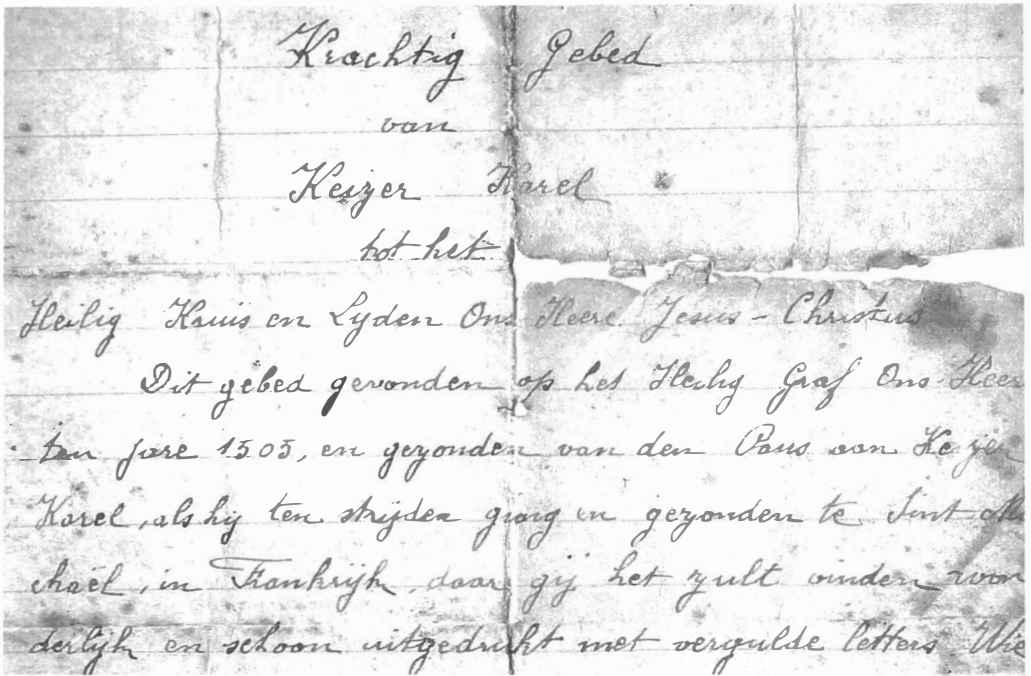 Krachtig Gebed
van
Keizer Karel
tot het
Heilig Kruis en Lyden Ons Heere Jesus - Christus
Dit gebed gevonden op het Heilig Graf Ons Heer
ten jare 1505, en gezonden van den Paus aan Keizer
Karel, als hij ten strijden ging en gezonden te Sint Mi
chaël, in Frankrijk, daar gij het zult vinden won
derlijk en schoon uitgedrukt met vergulde letters Wie